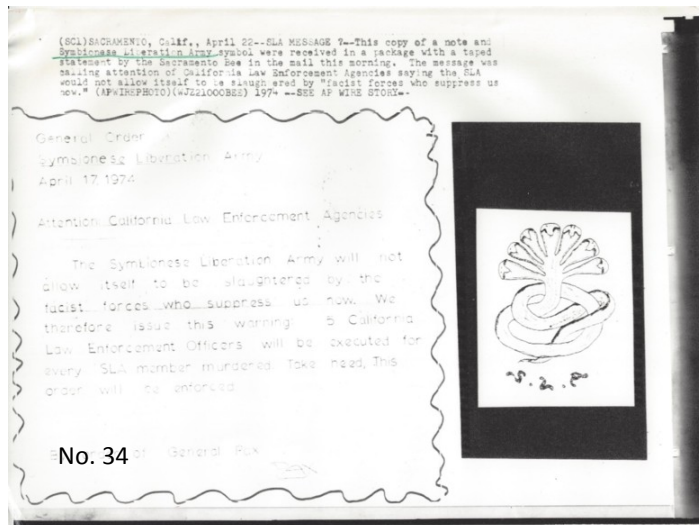 (SC1)SACRAMENTO, Calif., April 22--SLA MESSAGE ?--This copy of a note and
Symbionese Liberation Army symbol were received in a package with a taped
statement by the Sacramento Bee in the mail this morning. The message was
calling attention of California Law Enforcement Agencies saying the SLA
would not allow itself to be slaughered by "facist forces who suppress us
now." (APWIREPHOTO)(WJZ21000BEE) 1974 --SEE AP WIRE STORY--
General Order
Symbionese Liberation Army
April 17, 1974
Attention California Law Enforcement Agencies
The Symbionese Liberation Army will not
allow itself to be slaughtered by the
facist forces who suppress us now. We
therefore issue this warning 5 California
Law Enforcement Officers will be executed for
every SLA member murdered. Take heed, This
order will be enforced
of General Fox
No. 34